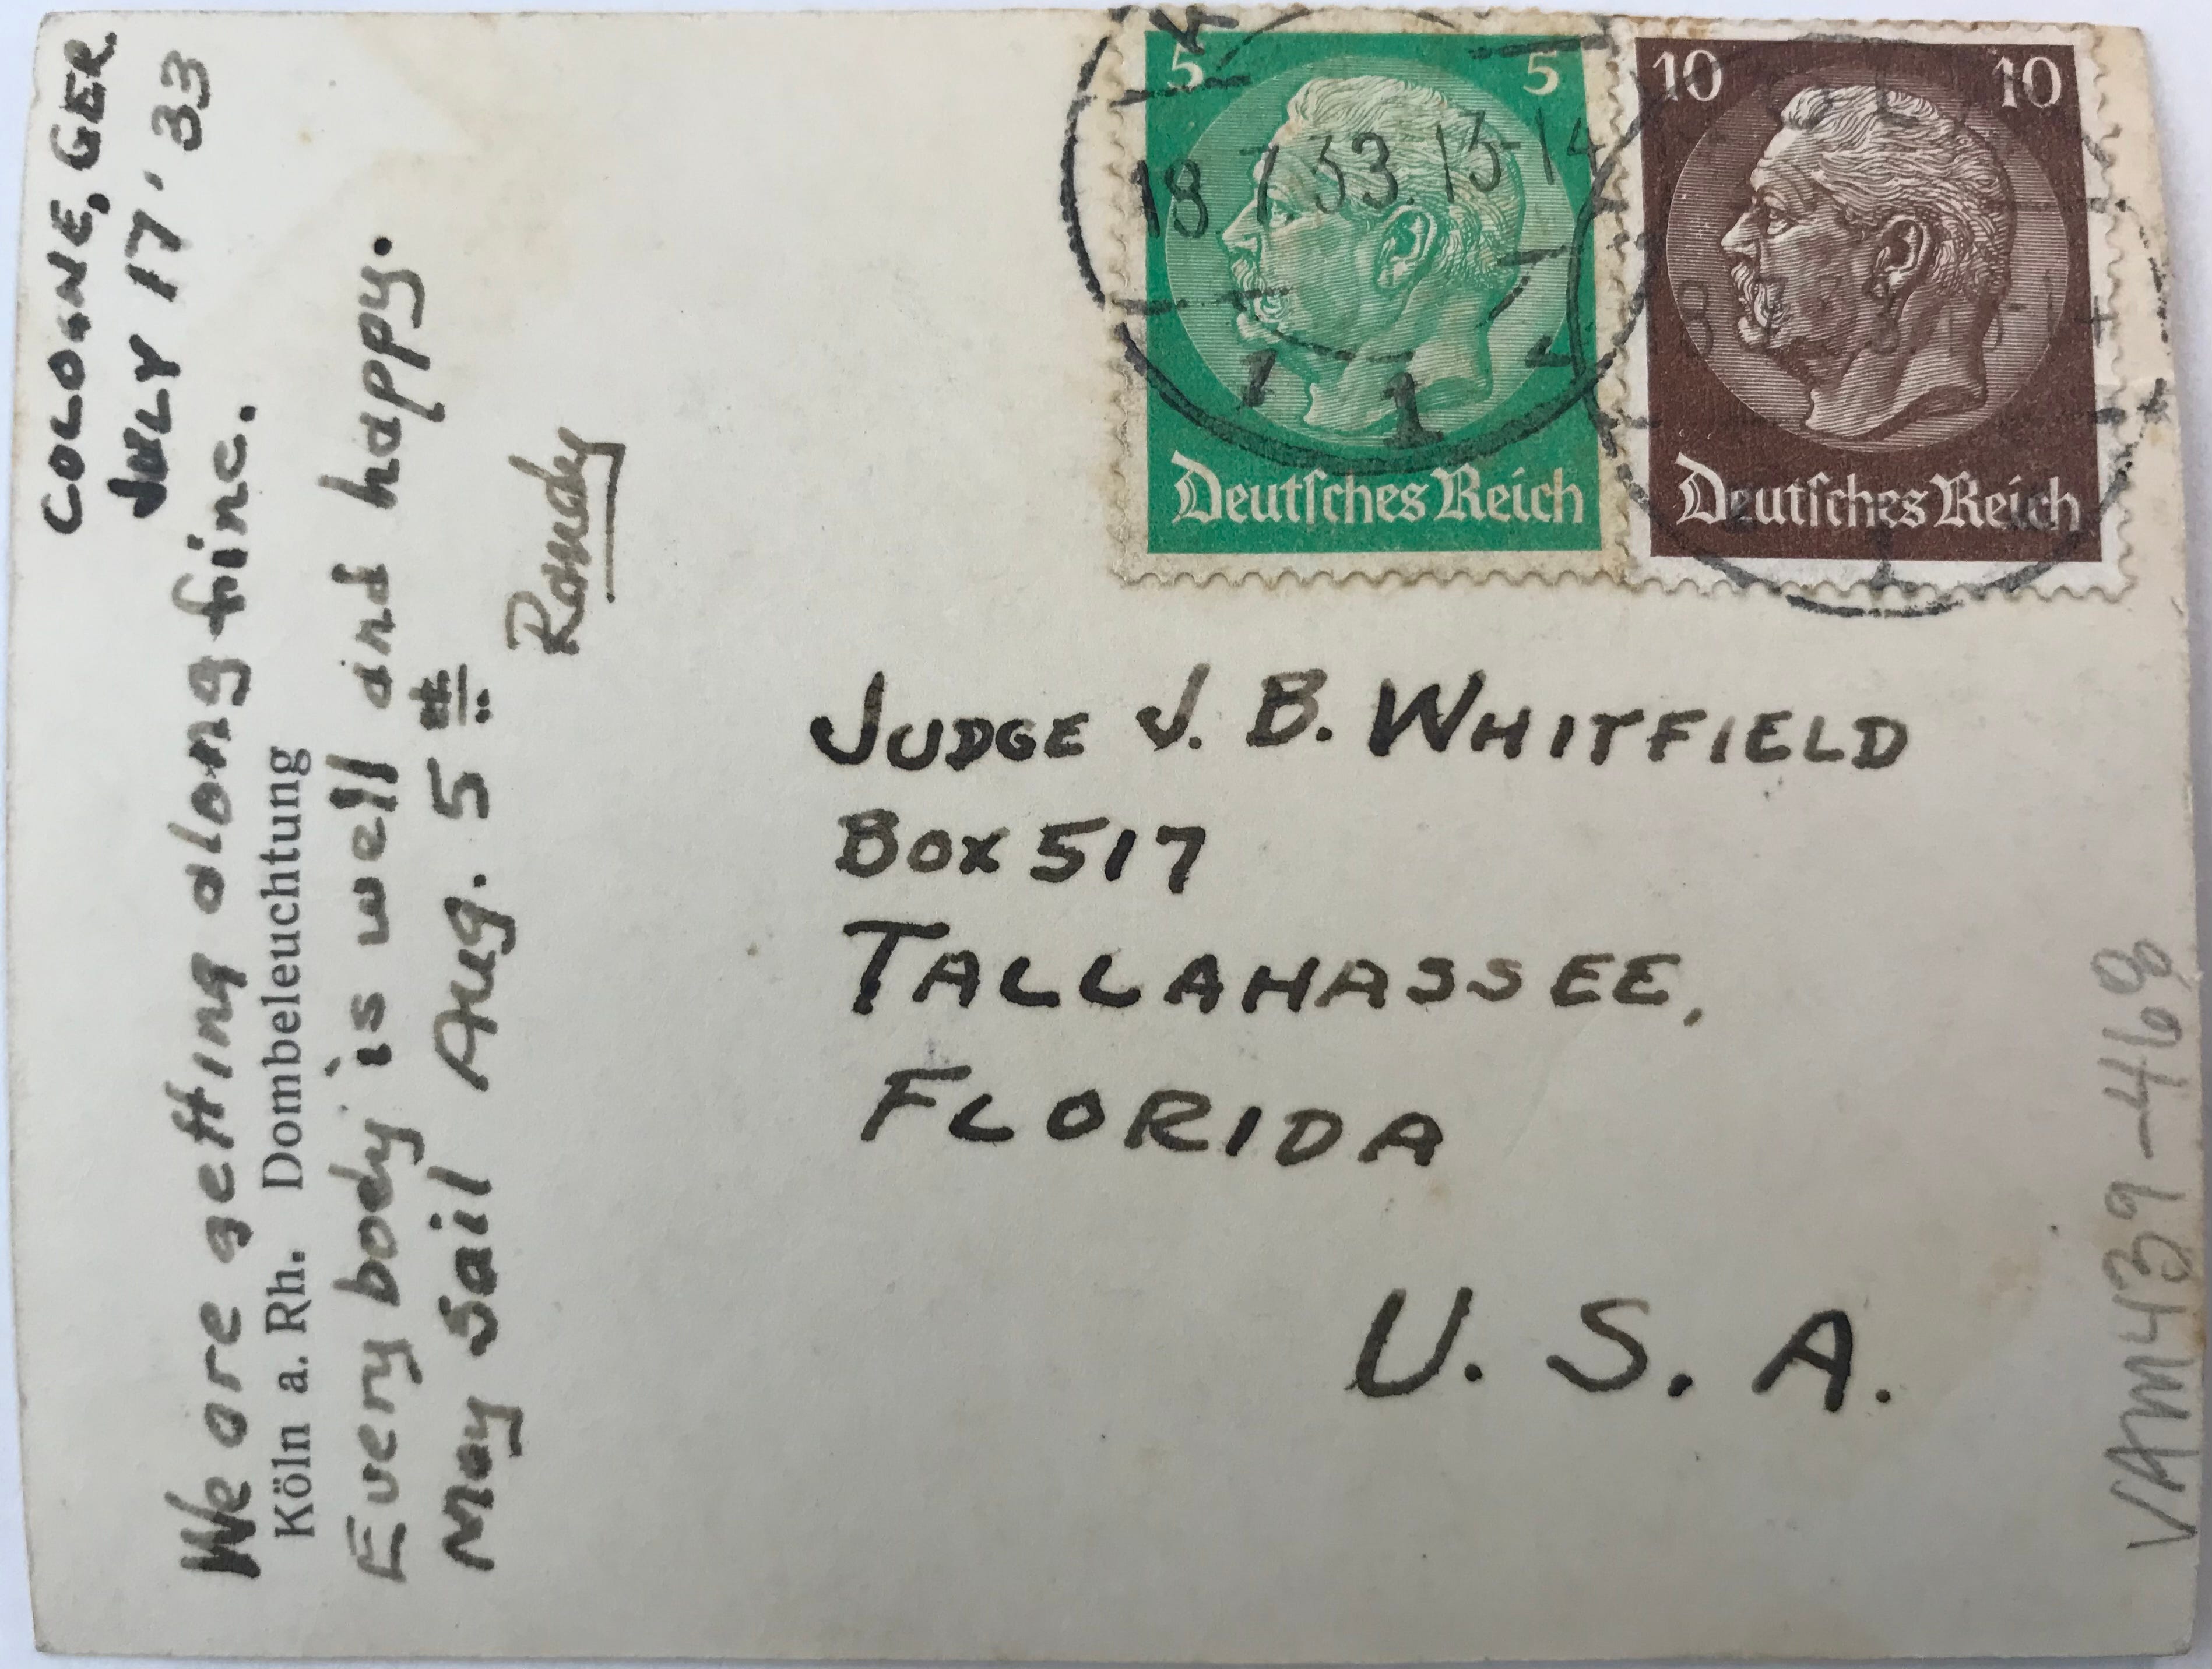 COLOGNE, GER.
JULY 17 '33
We are getting along fine.
Köln a. Rh. Dombeleuchtung
Every body is well and happy.
May sail Aug. 5th
Randy
5 5
18 7.33.13-14
1
Deutsches Reich
10 10
Deutsches Reich
JUDGE J. B. WHITFIELD
BOX 517
TALLAHASSEE,
FLORIDA
U. S. A.
VAM439-469